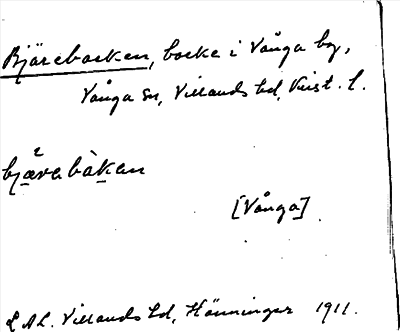 Bjärebacken, backe i Vånga by,
Vånga sn, Villands hd, Krist. l.
bjæ²rabàkan
[Vånga]
LAL. Villands hd, Hänninger 1911.